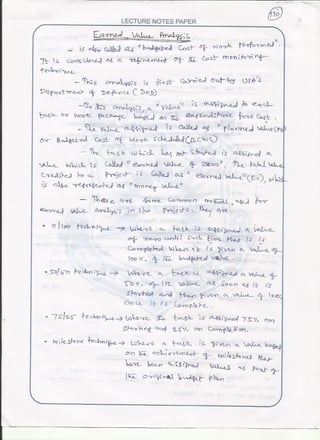 LECTURE NOTES PAPER
Earned Value Analysis
- is also called as "budgeted Cost of work Performed".
It is considered as a refinement of the Cost monitoring
technique.
- This analysis is first Carried out by US's
Department of Defence (DOD)
- In this analysis, a "value" is assigned to each
task or work package based on the expenditure fore Cast.
- The value assigned is Called as "planned value (PV)
or Budgeted Cost of work scheduled (BCWS).
- The task which has not started is assigned a
value which is Called "earned value of zero". The total value
Credited to a Project is Called as "earned value" (EV), which
is also represented as "money value"
- There are some Common methods used for
earned value analysis in s/w Projects. They are
• 0/100 technique → where a task is assigned a value
of zero until such time that it is
Completed when it is given a value of
100% of the budgeted value.
• 50/50 technique → where a task is assigned a value of
50% of its value as soon as it is
started and then given a value of 100%
Once it is Complete.
• 75/25 technique → where the task is assigned 75% on
starting and 25% on Completion.
• Milestone technique → where a task is given a value based
on the achievement of milestones that
have been assigned values as Part of
the original budget Plan.